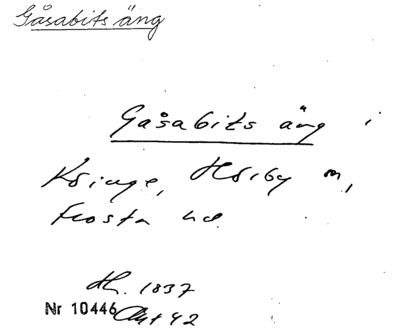 Gåsabits äng
Gåsabits äng i
Kringe, Hörby sn,
Frosta hd.
Hh. 1837
Nr 10446 Akt 42